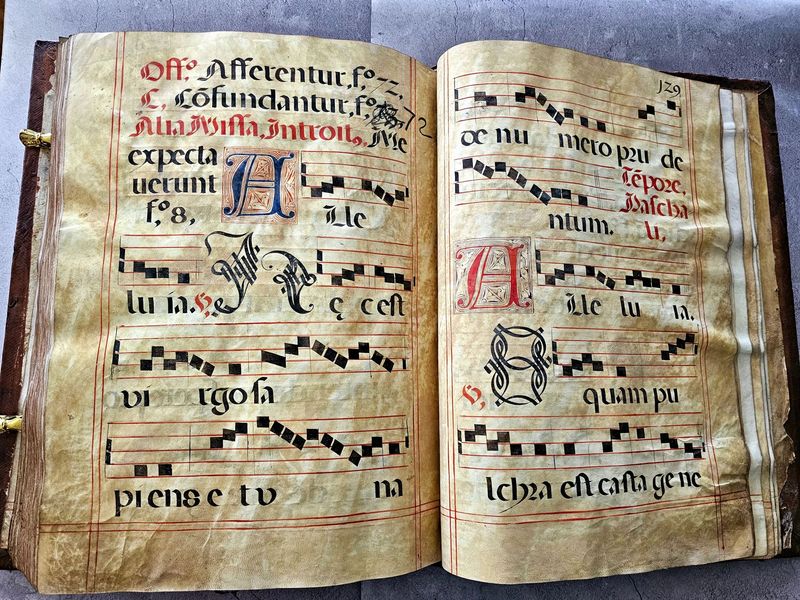 Off,º Afferentur, f,º 72,
C, Cõfundantur, f,º 72
Alia Missa, Introitº, Me
expecta
uerunt
f,º 8,
A Lle
lu ia. ℣, Hę c est
vi rgo sa
piens e t v na
129
de nu mero pru de
ntum.
Tẽpore,
Pascha
li,
A Lle lu ia.
℣, O quam pu
lchra est casta ge ne